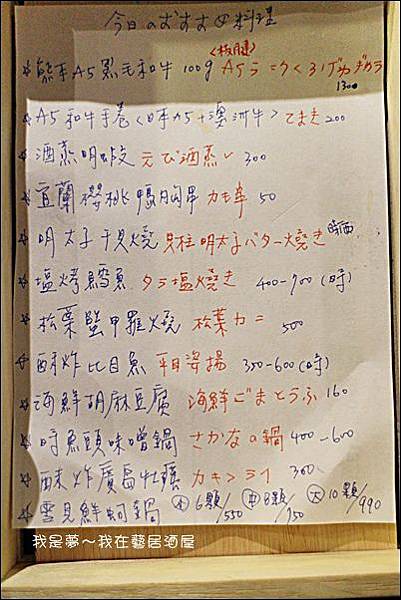 今日のおすすめ料理
<板腱>
☆ 熊本A5黒毛和牛 100g A5
1300
☆ A5和牛手巻<日本A5+澳洲牛> てまき 200
☆ 酒蒸明蝦 えび酒蒸し 300
☆ 宜蘭櫻桃鴨胸串 カモ串 50
☆ 明太子干貝燒 貝柱明太子バター焼き 時価
☆ 塩烤鱈魚 タラ塩焼き 400-900 (時)
☆ 松葉蟹甲羅燒 松葉カニ 500
☆ 酥炸比目魚 平目姿揚 350-600 (時)
☆ 海鮮胡麻豆腐 海鮮ごまとうふ 160
☆ 時魚頭味噌鍋 さかなの鍋 400-600
☆ 酥炸廣島牡蠣 カキフライ 300
☆ 雪見鮮蚵鍋 小 6顆/550 中 8顆/750 大 10顆/990
我是夢～我在藝居酒屋